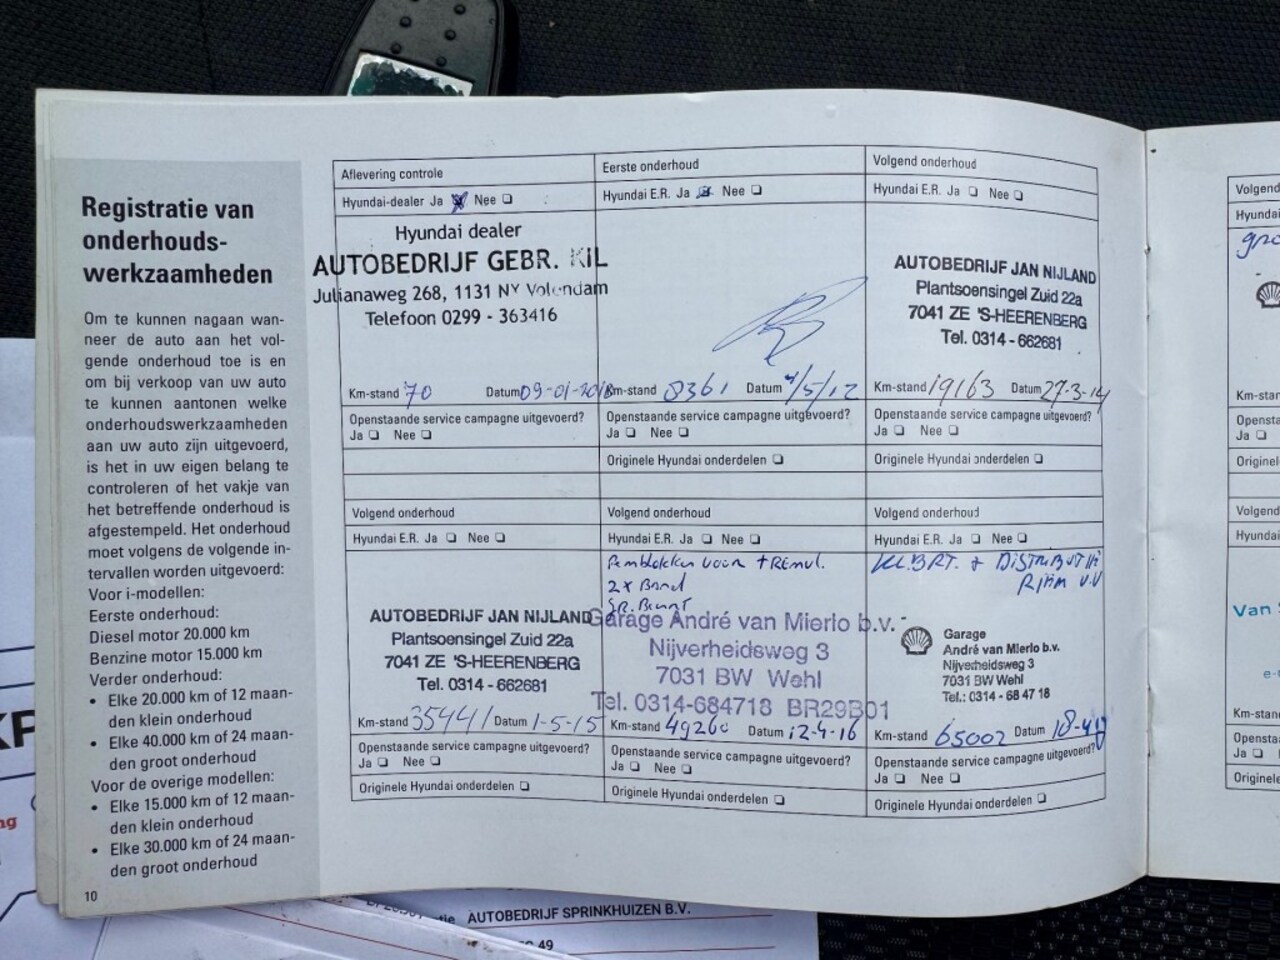 Registratie van
onderhouds-
werkzaamheden
Om te kunnen nagaan wan-
neer de auto aan het vol-
gende onderhoud toe is en
om bij verkoop van uw auto
te kunnen aantonen welke
onderhoudswerkzaamheden
aan uw auto zijn uitgevoerd,
is het in uw eigen belang te
controleren of het vakje van
het betreffende onderhoud is
afgestempeld. Het onderhoud
moet volgens de volgende in-
tervallen worden uitgevoerd:
Voor i-modellen:
Eerste onderhoud:
Diesel motor 20.000 km
Benzine motor 15.000 km
Verder onderhoud:
• Elke 20.000 km of 12 maan-
den klein onderhoud
• Elke 40.000 km of 24 maan-
den groot onderhoud
Voor de overige modellen:
• Elke 15.000 km of 12 maan-
den klein onderhoud
• Elke 30.000 km of 24 maan-
den groot onderhoud
10
Aflevering controle
Hyundai-dealer Ja Nee
Hyundai dealer
AUTOBEDRIJF GEBR. KIL
Julianaweg 268, 1131 NV Volendam
Telefoon 0299 - 363416
Km-stand 70 Datum 09-01-
Openstaande service campagne uitgevoerd?
Ja Nee
Eerste onderhoud
Hyundai E.R. Ja Nee
Km-stand 8361 Datum 4/5/12
Openstaande service campagne uitgevoerd?
Ja Nee
Originele Hyundai onderdelen
Volgend onderhoud
Hyundai E.R. Ja Nee
AUTOBEDRIJF JAN NIJLAND
Plantsoensingel Zuid 22a
7041 ZE 'S-HEERENBERG
Tel. 0314 - 662681
Km-stand 19163 Datum 27-3-14
Openstaande service campagne uitgevoerd?
Ja Nee
Originele Hyundai onderdelen
Volgend onderhoud
Hyundai E.R. Ja Nee
AUTOBEDRIJF JAN NIJLAND
Plantsoensingel Zuid 22a
7041 ZE 'S-HEERENBERG
Tel. 0314 - 662681
Km-stand 35441 Datum 1-5-15
Openstaande service campagne uitgevoerd?
Ja Nee
Originele Hyundai onderdelen
Volgend onderhoud
Hyundai E.R. Ja Nee
Remblokken voor + REmvl.
2x Band
Garage André van Mierlo b.v.
Nijverheidsweg 3
7031 BW Wehl
Tel. 0314-684718 BR29B01
Km-stand 49260 Datum 12-4-16
Openstaande service campagne uitgevoerd?
Ja Nee
Originele Hyundai onderdelen
Volgend onderhoud
Hyundai E.R. Ja Nee
KL.BRT. + DISTRIBUTIE
RIEM V.V
Garage
André van Mierlo b.v.
Nijverheidsweg 3
7031 BW Wehl
Tel.: 0314 - 68 47 18
Km-stand 65002 Datum 18-4-
Openstaande service campagne uitgevoerd?
Ja Nee
Originele Hyundai onderdelen
Volgend
Hyundai
Km-stan
Openst
Ja
Originel
Volgend
Hyundai
Van
e-
Km-stan
Opensta
Ja
Originele
ng
tie AUTOBEDRIJF SPRINKHUIZEN B.V.
49